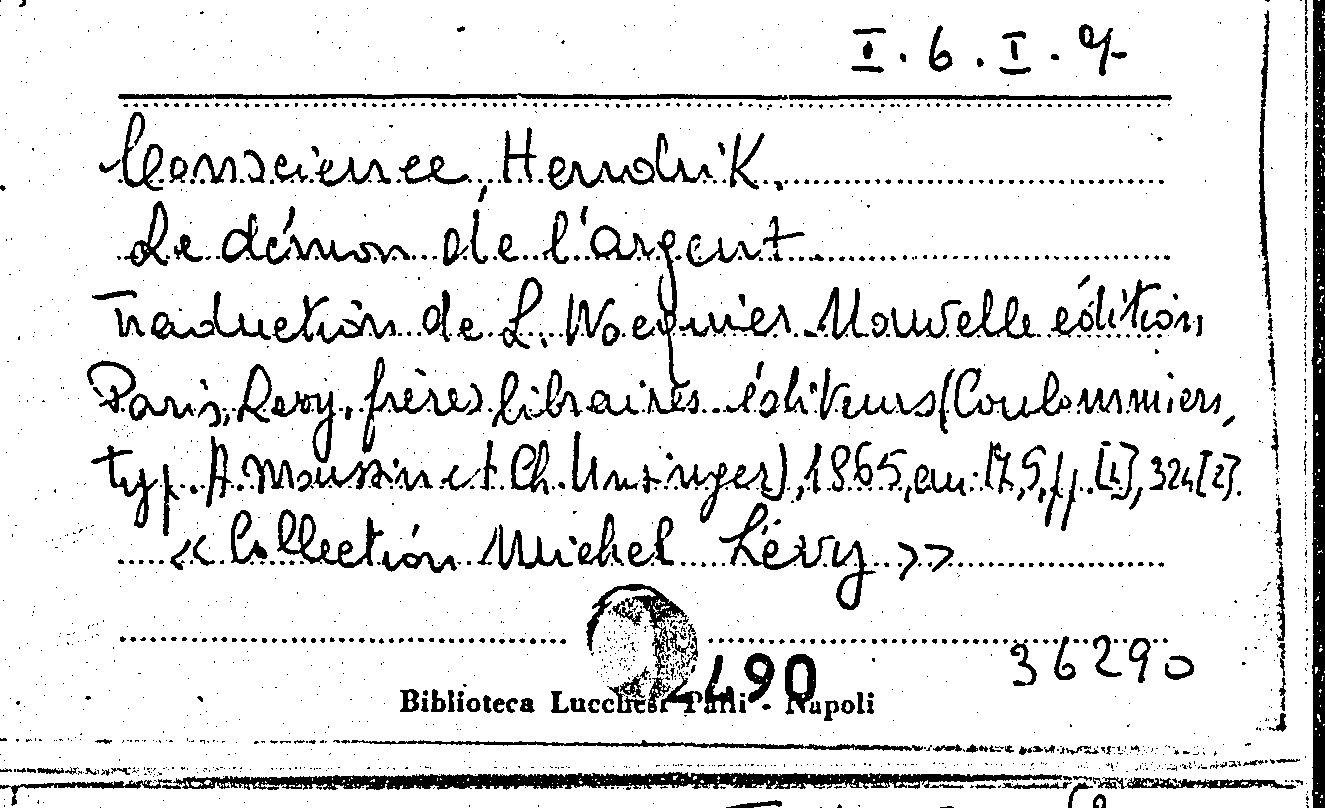 I. 6. I. 9
Conscience, Hendrik.
Le démon de l'argent.
Traduction de L. Wocquier. Nouvelle édition,
Paris, Levy, frères libraires éditeurs (Coulommiers,
typ. A. Moussin et Ch. Unsinger), 1865, au. 17,5, pp. [4], 324 [2].
« Collection Michel Lévy »
36290
490
Biblioteca Lucchesi Palli - Napoli